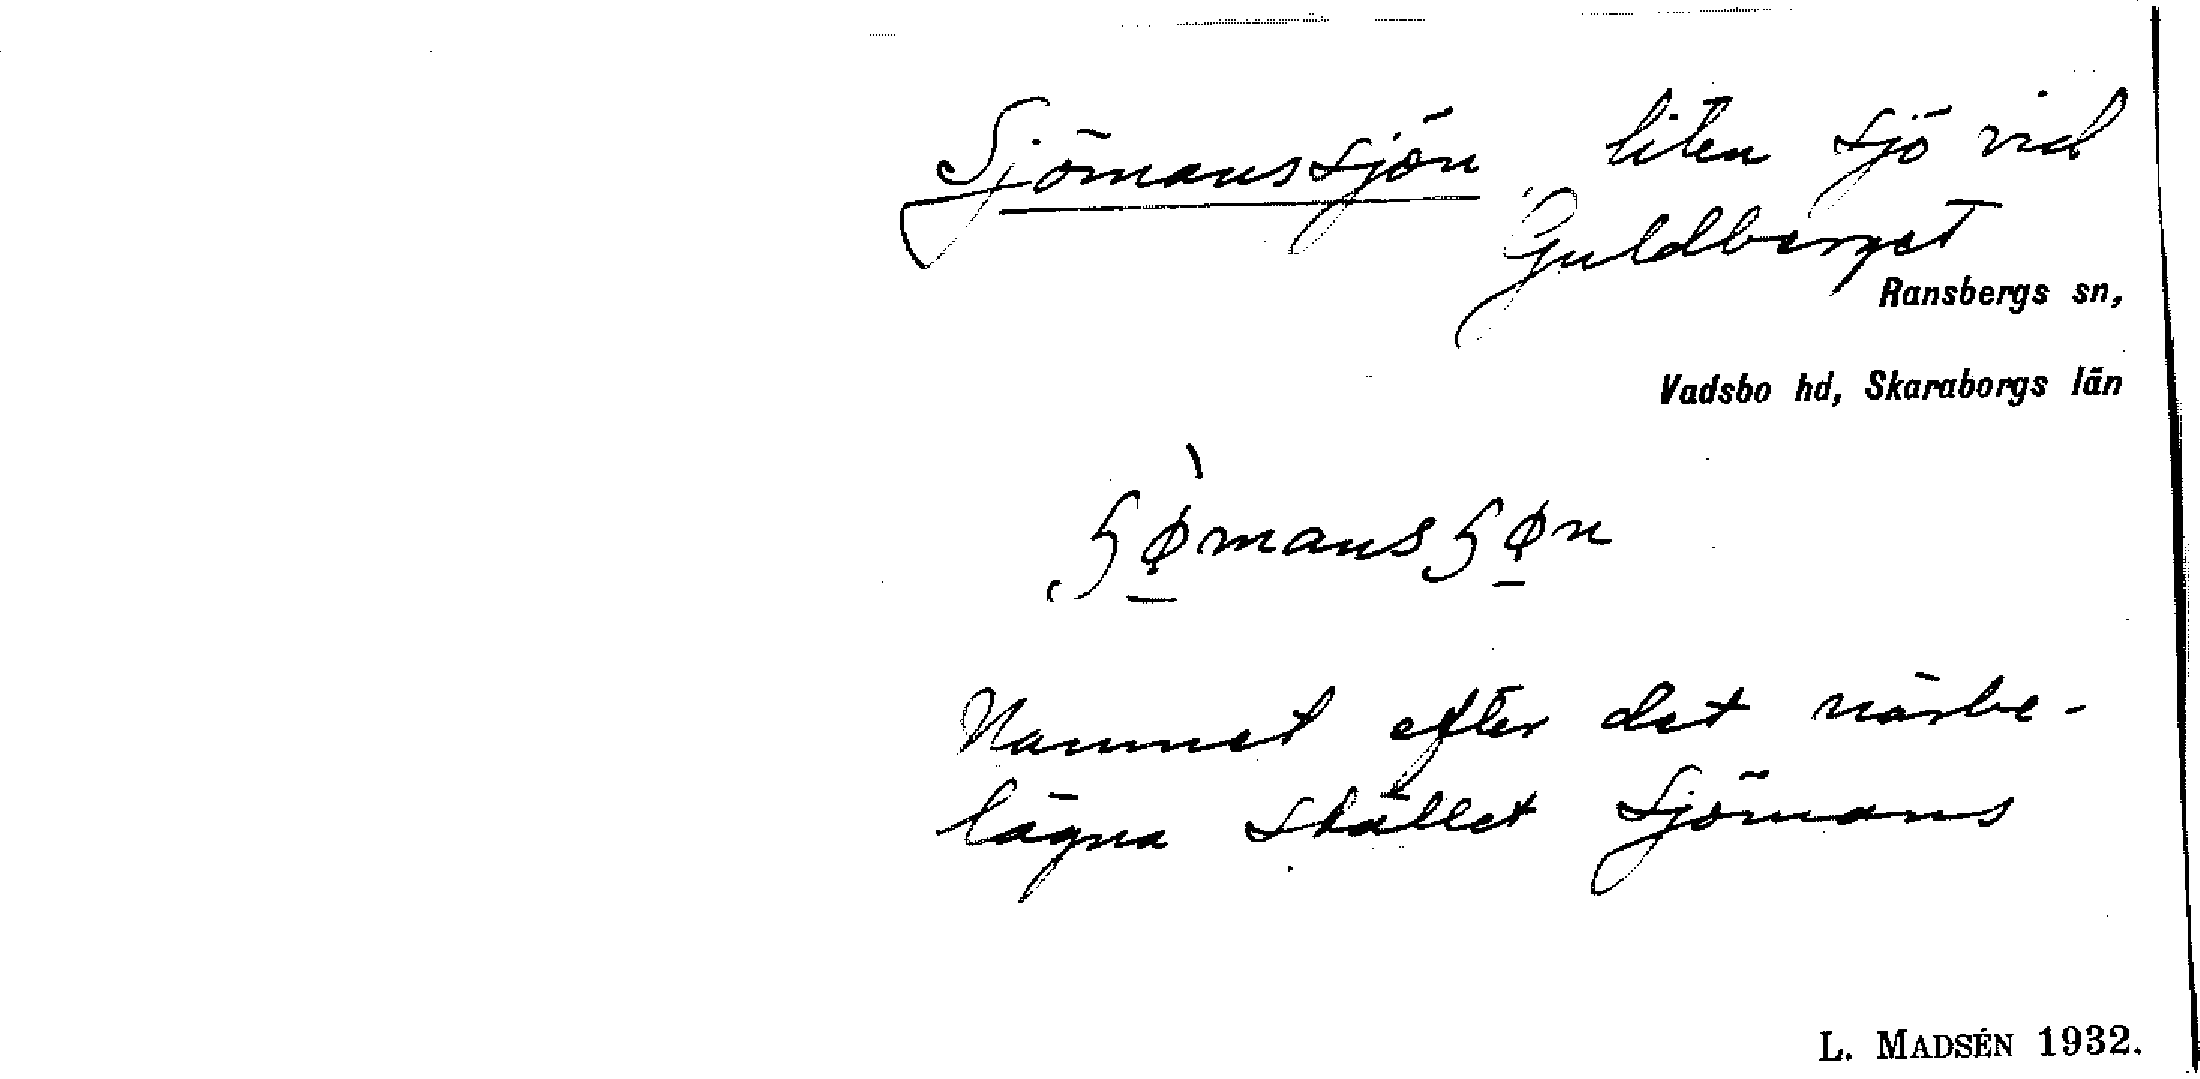 Sjömanssjön liten sjö vid
Guldberget
Ransbergs sn,
Vadsbo hd, Skaraborgs län
Namnet efter det närbe-
lägna stället Sjömans
L. MADSÉN 1932.